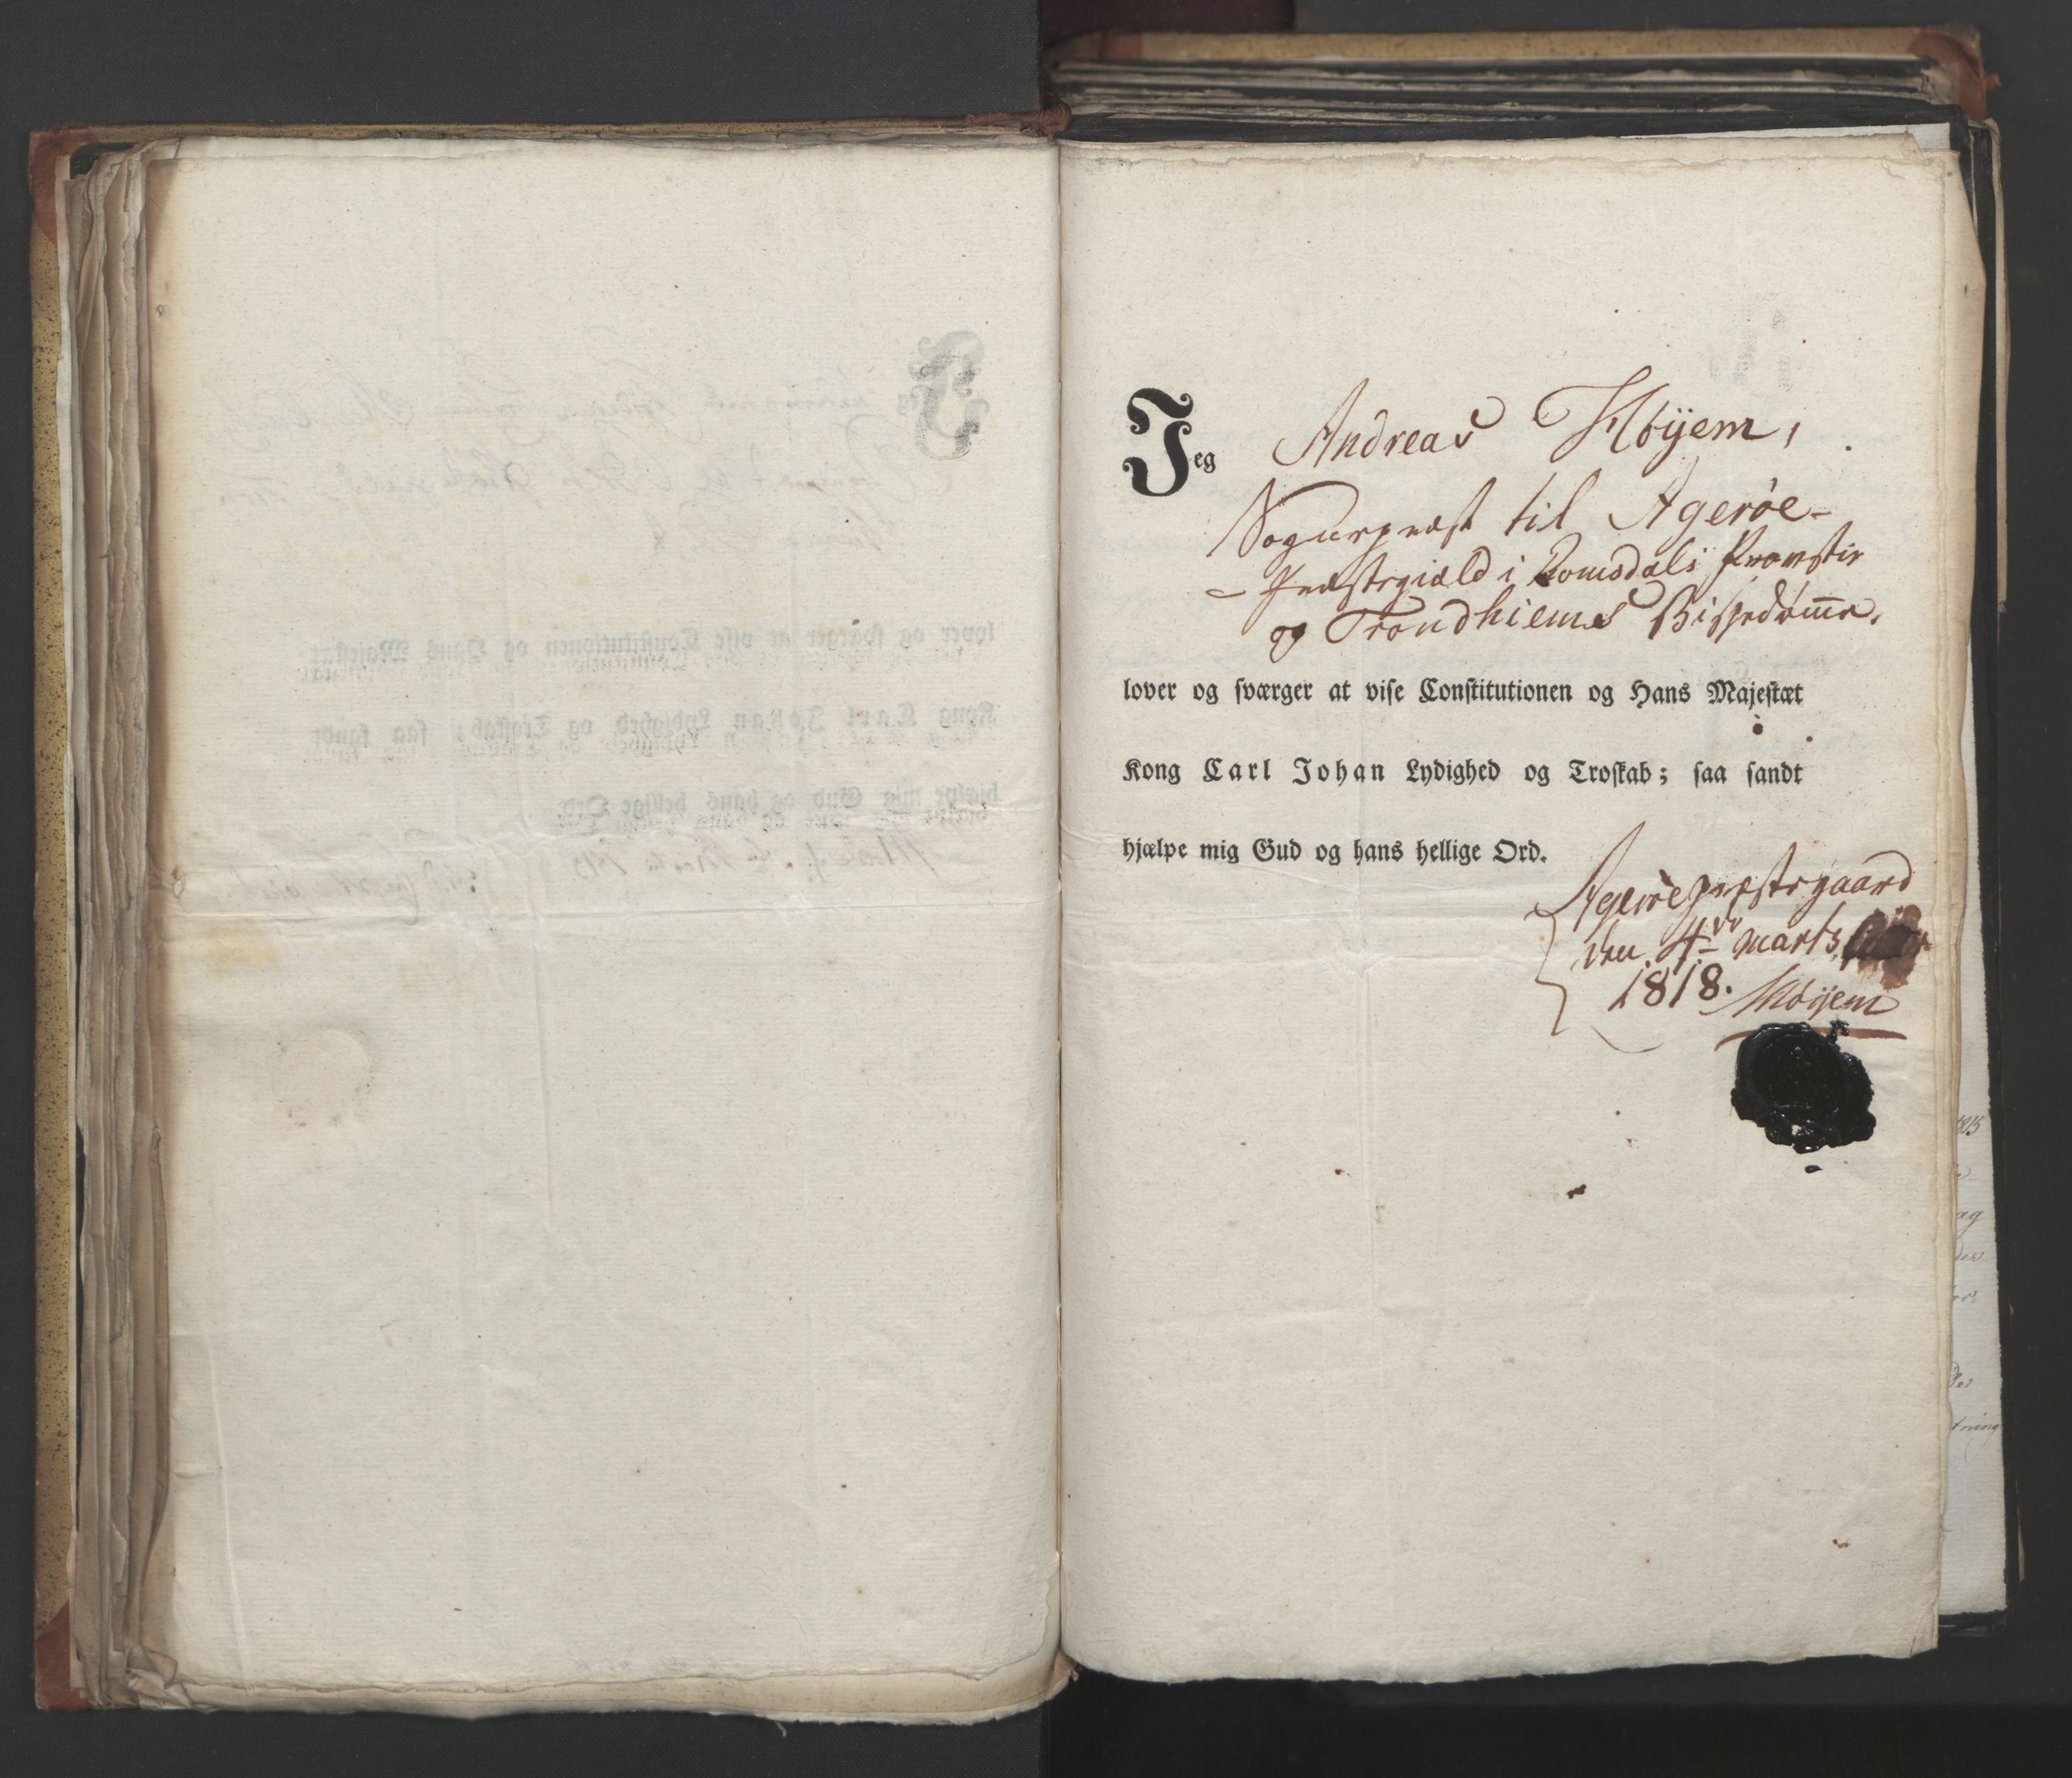 Jeg Andreas Höÿem,
Sognepræst til Agerøe-
- Præstegiæld i Romsdals Provstie
og Trondhiems Bispedømme.
lover og sværger at vise Constitutionen og Hans Majestæt
Kong Carl Johan Lydighed og Troskab; saa sandt
hjælpe mig Gud og hans hellige Ord.
Agerøepræstegaard
den 4de Marts
1818. Höÿem